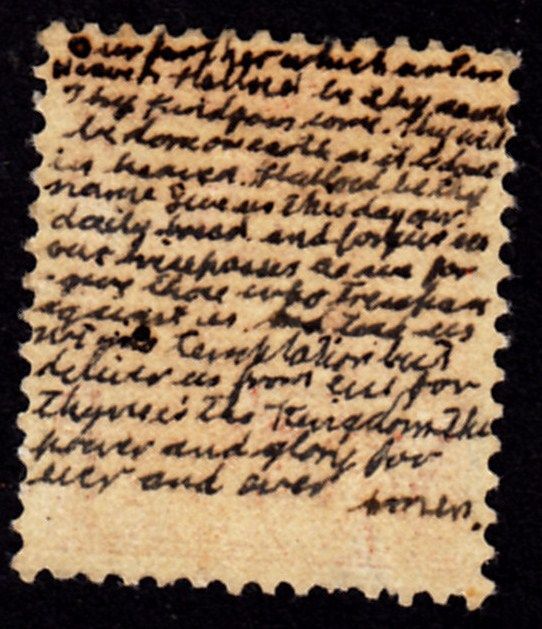 Our father which art in
Heaven Hallod be thy name
Thy Kindgom come. Thy will
be done on earth as it is done
in heaven. Hallod be thy
name Give us this day our
daily bread and forgive us
our trespasses as we for
-give those who trespass
against us and lead us
not into temptation but
deliver us from evil for
thyne is the Kingdom The
power and glory for
ever and over
amen.